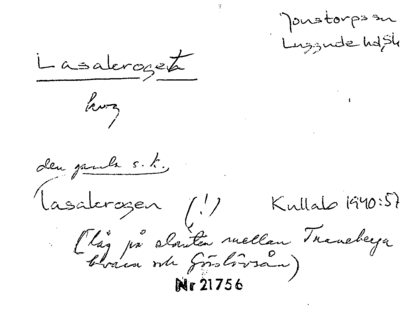 Jonstorps sn
Luggude hd, Sk
Lasakroget
krog
den gamla s.k.
Lasakrogen (!) Kullabo 1940:57
(låg på slätten mellan Tranebergs
kvarn och Görslövsån)
Nr 21756